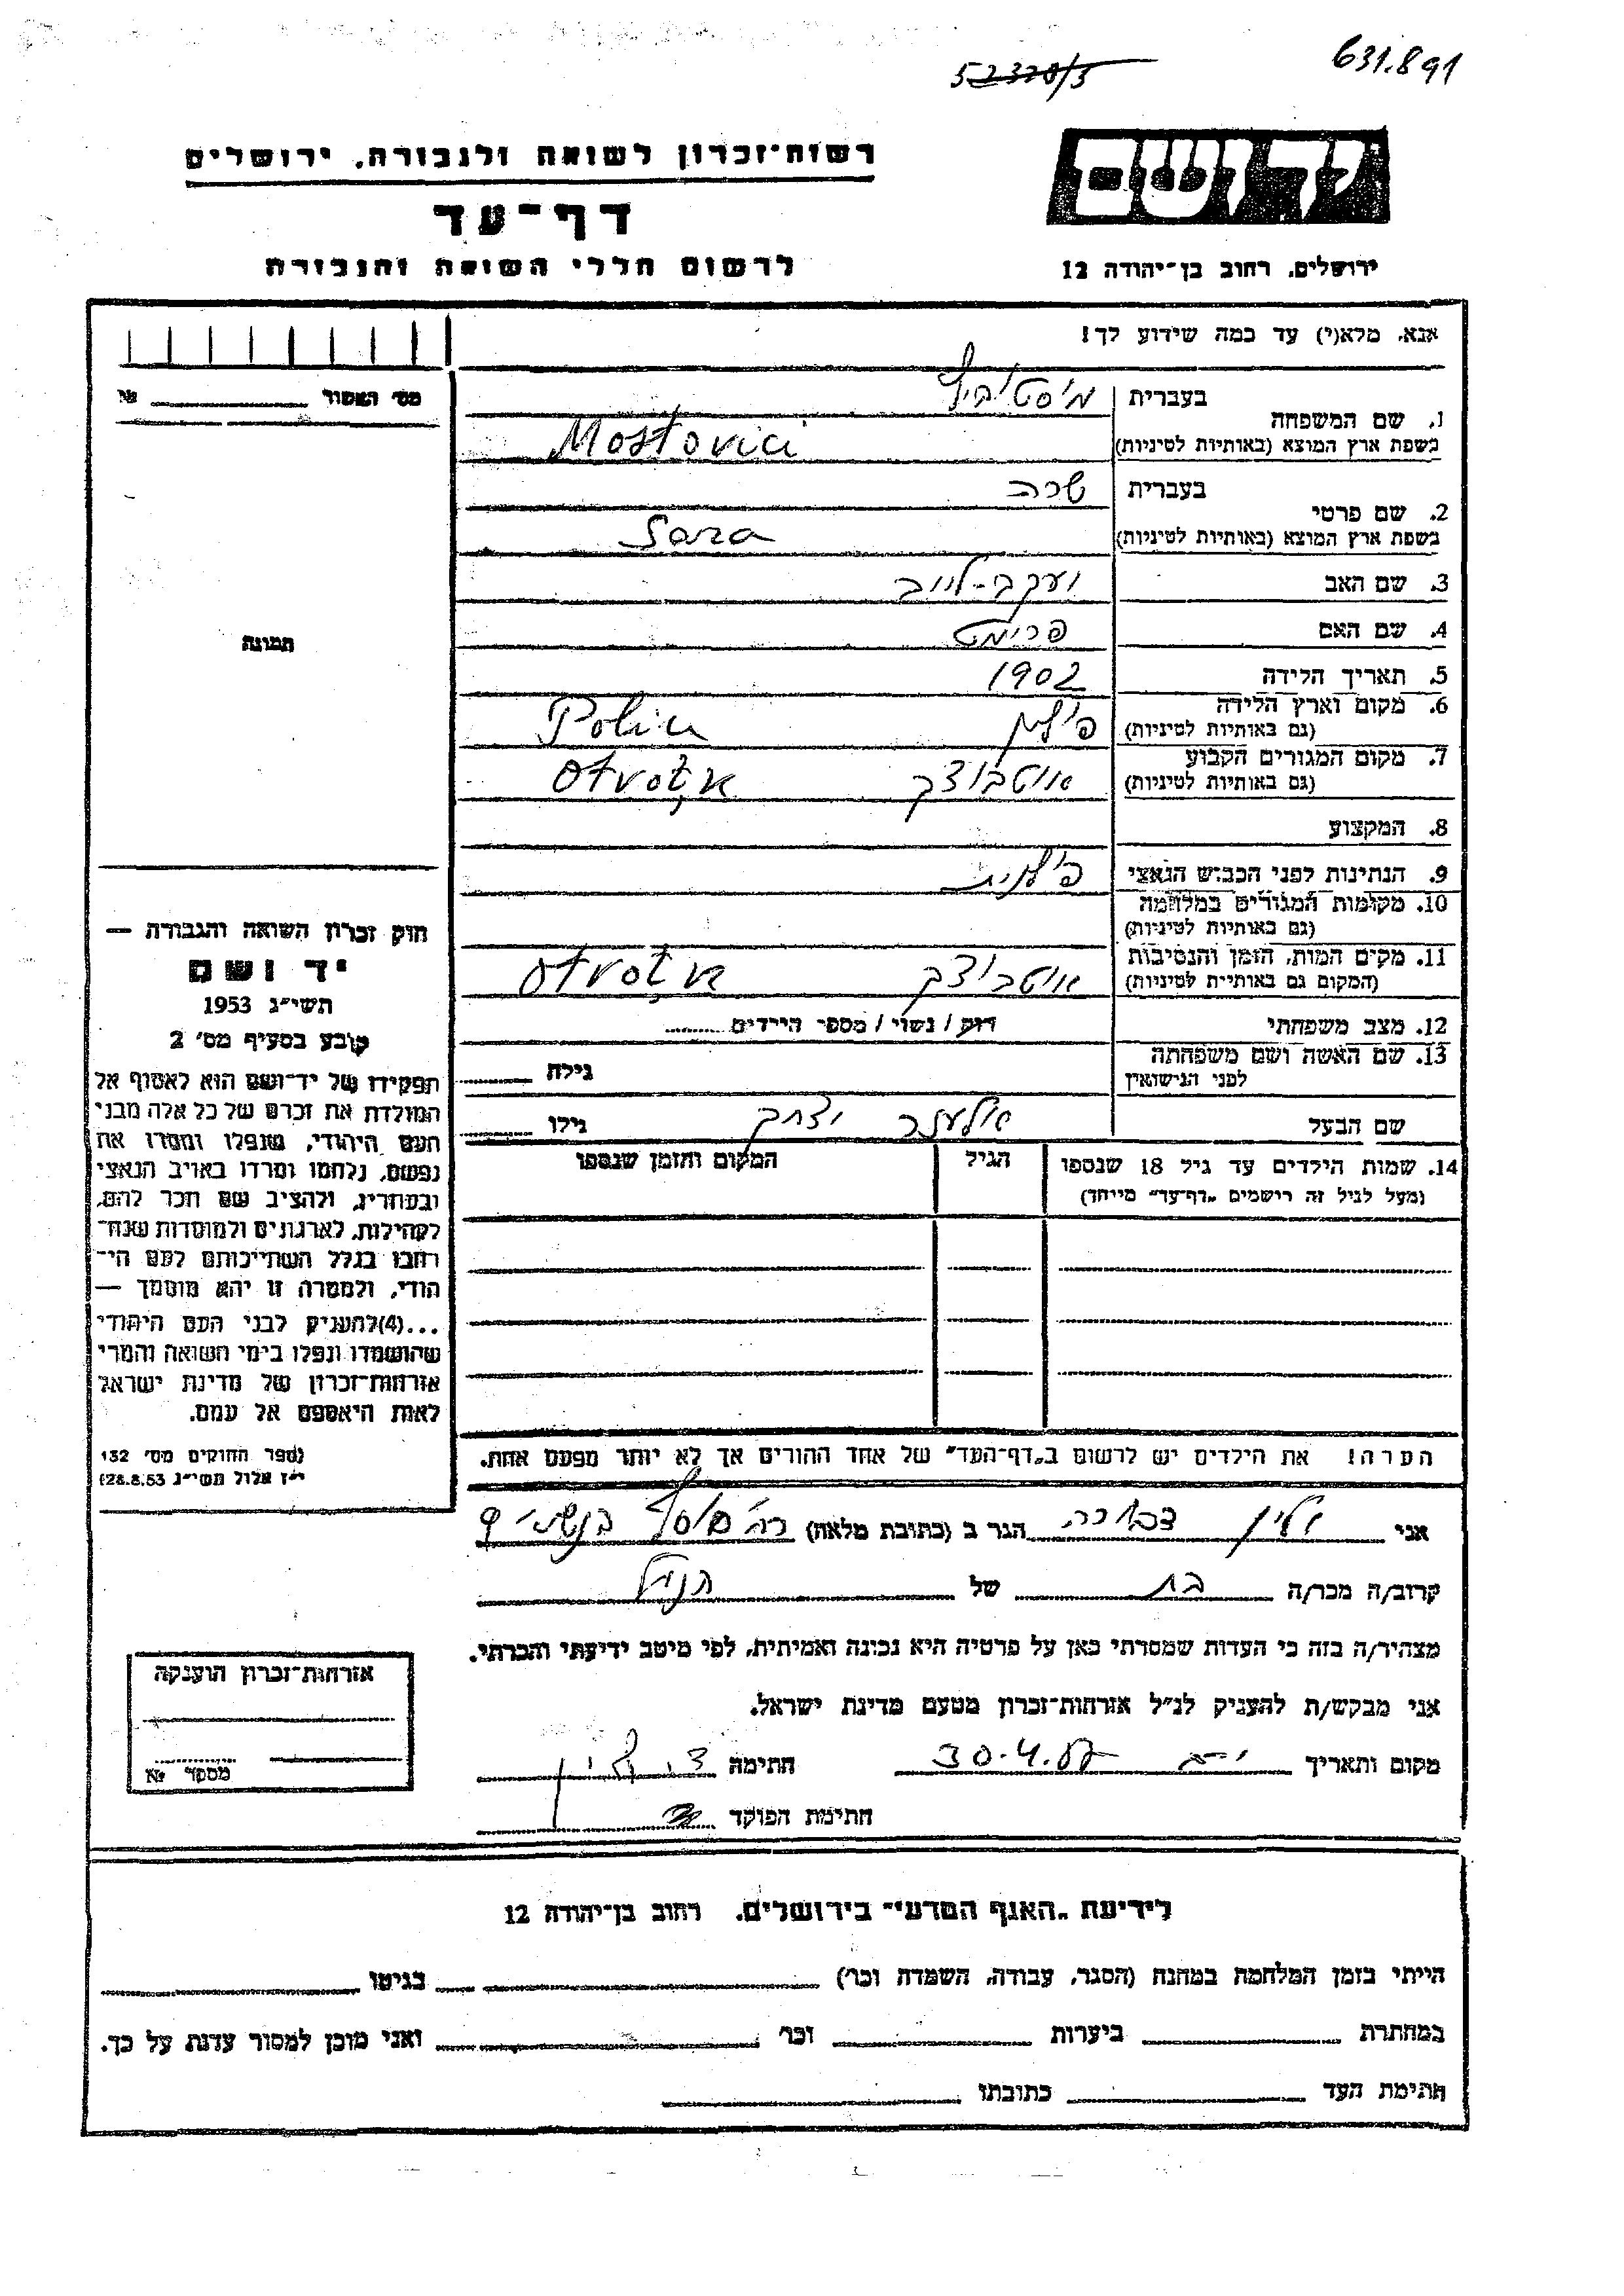 631.891
52328/3
יד ושם
רשות־זכרון לשואה ולגבורה, ירושלים
דף־עד
לרשום חללי השואה והגבורה
ירושלים, רחוב בן־יהודה 12
אנא, מלא(י) עד כמה שידוע לך!
מס׳ האשור № 
1. שם המשפחה
בעברית מוסטוביץ
בשפת ארץ המוצא (באותיות לטיניות) Mostovici
2. שם פרטי
בעברית שרה
בשפת ארץ המוצא (באותיות לטיניות) Sara
3. שם האב יעקב-לייב
4. שם האם פרימט
תמונה
5. תאריך הלידה 1902
6. מקום וארץ הלידה פולין Polin
(גם באותיות לטיניות)
7. מקום המגורים הקבוע אוטבוצק Otvoțk
(גם באותיות לטיניות)
8. המקצוע
9. הנתינות לפני הכבוש הנאצי פולנית
10. מקומות המגורים במלחמה
(גם באותיות לטיניות)
11. מקום המות, הזמן והנסיבות אוטבוצק Otvoțk
(המקום גם באותיות לטיניות)
12. מצב משפחתי רוק / נשוי / מספר הילדים
13. שם האשה ושם משפחתה גילה
לפני הנישואין
שם הבעל יצחק גילו
14. שמות הילדים עד גיל 18 שנספו הגיל המקום והזמן שנספו
(מעל לגיל זה רישמים „דף־עד״ מיוחד)
חוק זכרון השואה והגבורה —
יד ושם
תשי״ג 1953
קובע בסעיף מס׳ 2
תפקידו של יד־ושם הוא לאסוף אל
המולדת את זכרם של כל אלה מבני
העם היהודי, שנפלו ומסרו את
נפשם, נלחמו ומרדו באויב הנאצי
ובעוזריו, ולהציב שם וזכר להם,
לקהילות, לארגונים ולמוסדות שנח־
רבו בגלל השתייכותם לעם הי־
הודי, ולמטרה זו יהא מוסמך —
...(4) להעניק לבני העם היהודי
שהושמדו ונפלו בימי השואה והמרי
אזרחות־זכרון של מדינת ישראל
לאות היאספם אל עמם.
(ספר החוקים מס׳ 132
י״ז אלול תשי״ג 28.8.53)
הערה! את הילדים יש לרשום ב„דף־העד״ של אחד ההורים אך לא יותר מפעם אחת.
אני דבורה הגר ב (כתובת מלאה)
קרוב/ה מכר/ה בת של
מצהיר/ה בזה כי העדות שמסרתי כאן על פרטיה היא נכונה ואמיתית, לפי מיטב ידיעתי והכרתי.
אני מבקש/ת להעניק לנ״ל אזרחות־זכרון מטעם מדינת ישראל.
מקום ותאריך 30.4.57 חתימה
חתימת הפוקד
אזרחות־זכרון הוענקה
מספר №
לידיעת „האגף המדעי״ בירושלים, רחוב בן־יהודה 12
הייתי בזמן המלחמה במחנה (הסגר, עבודה, השמדה וכו׳) בגיטו
במחתרת ביערות וכו׳ ואני מוכן למסור עדות על כך.
חתימת העד כתובתו